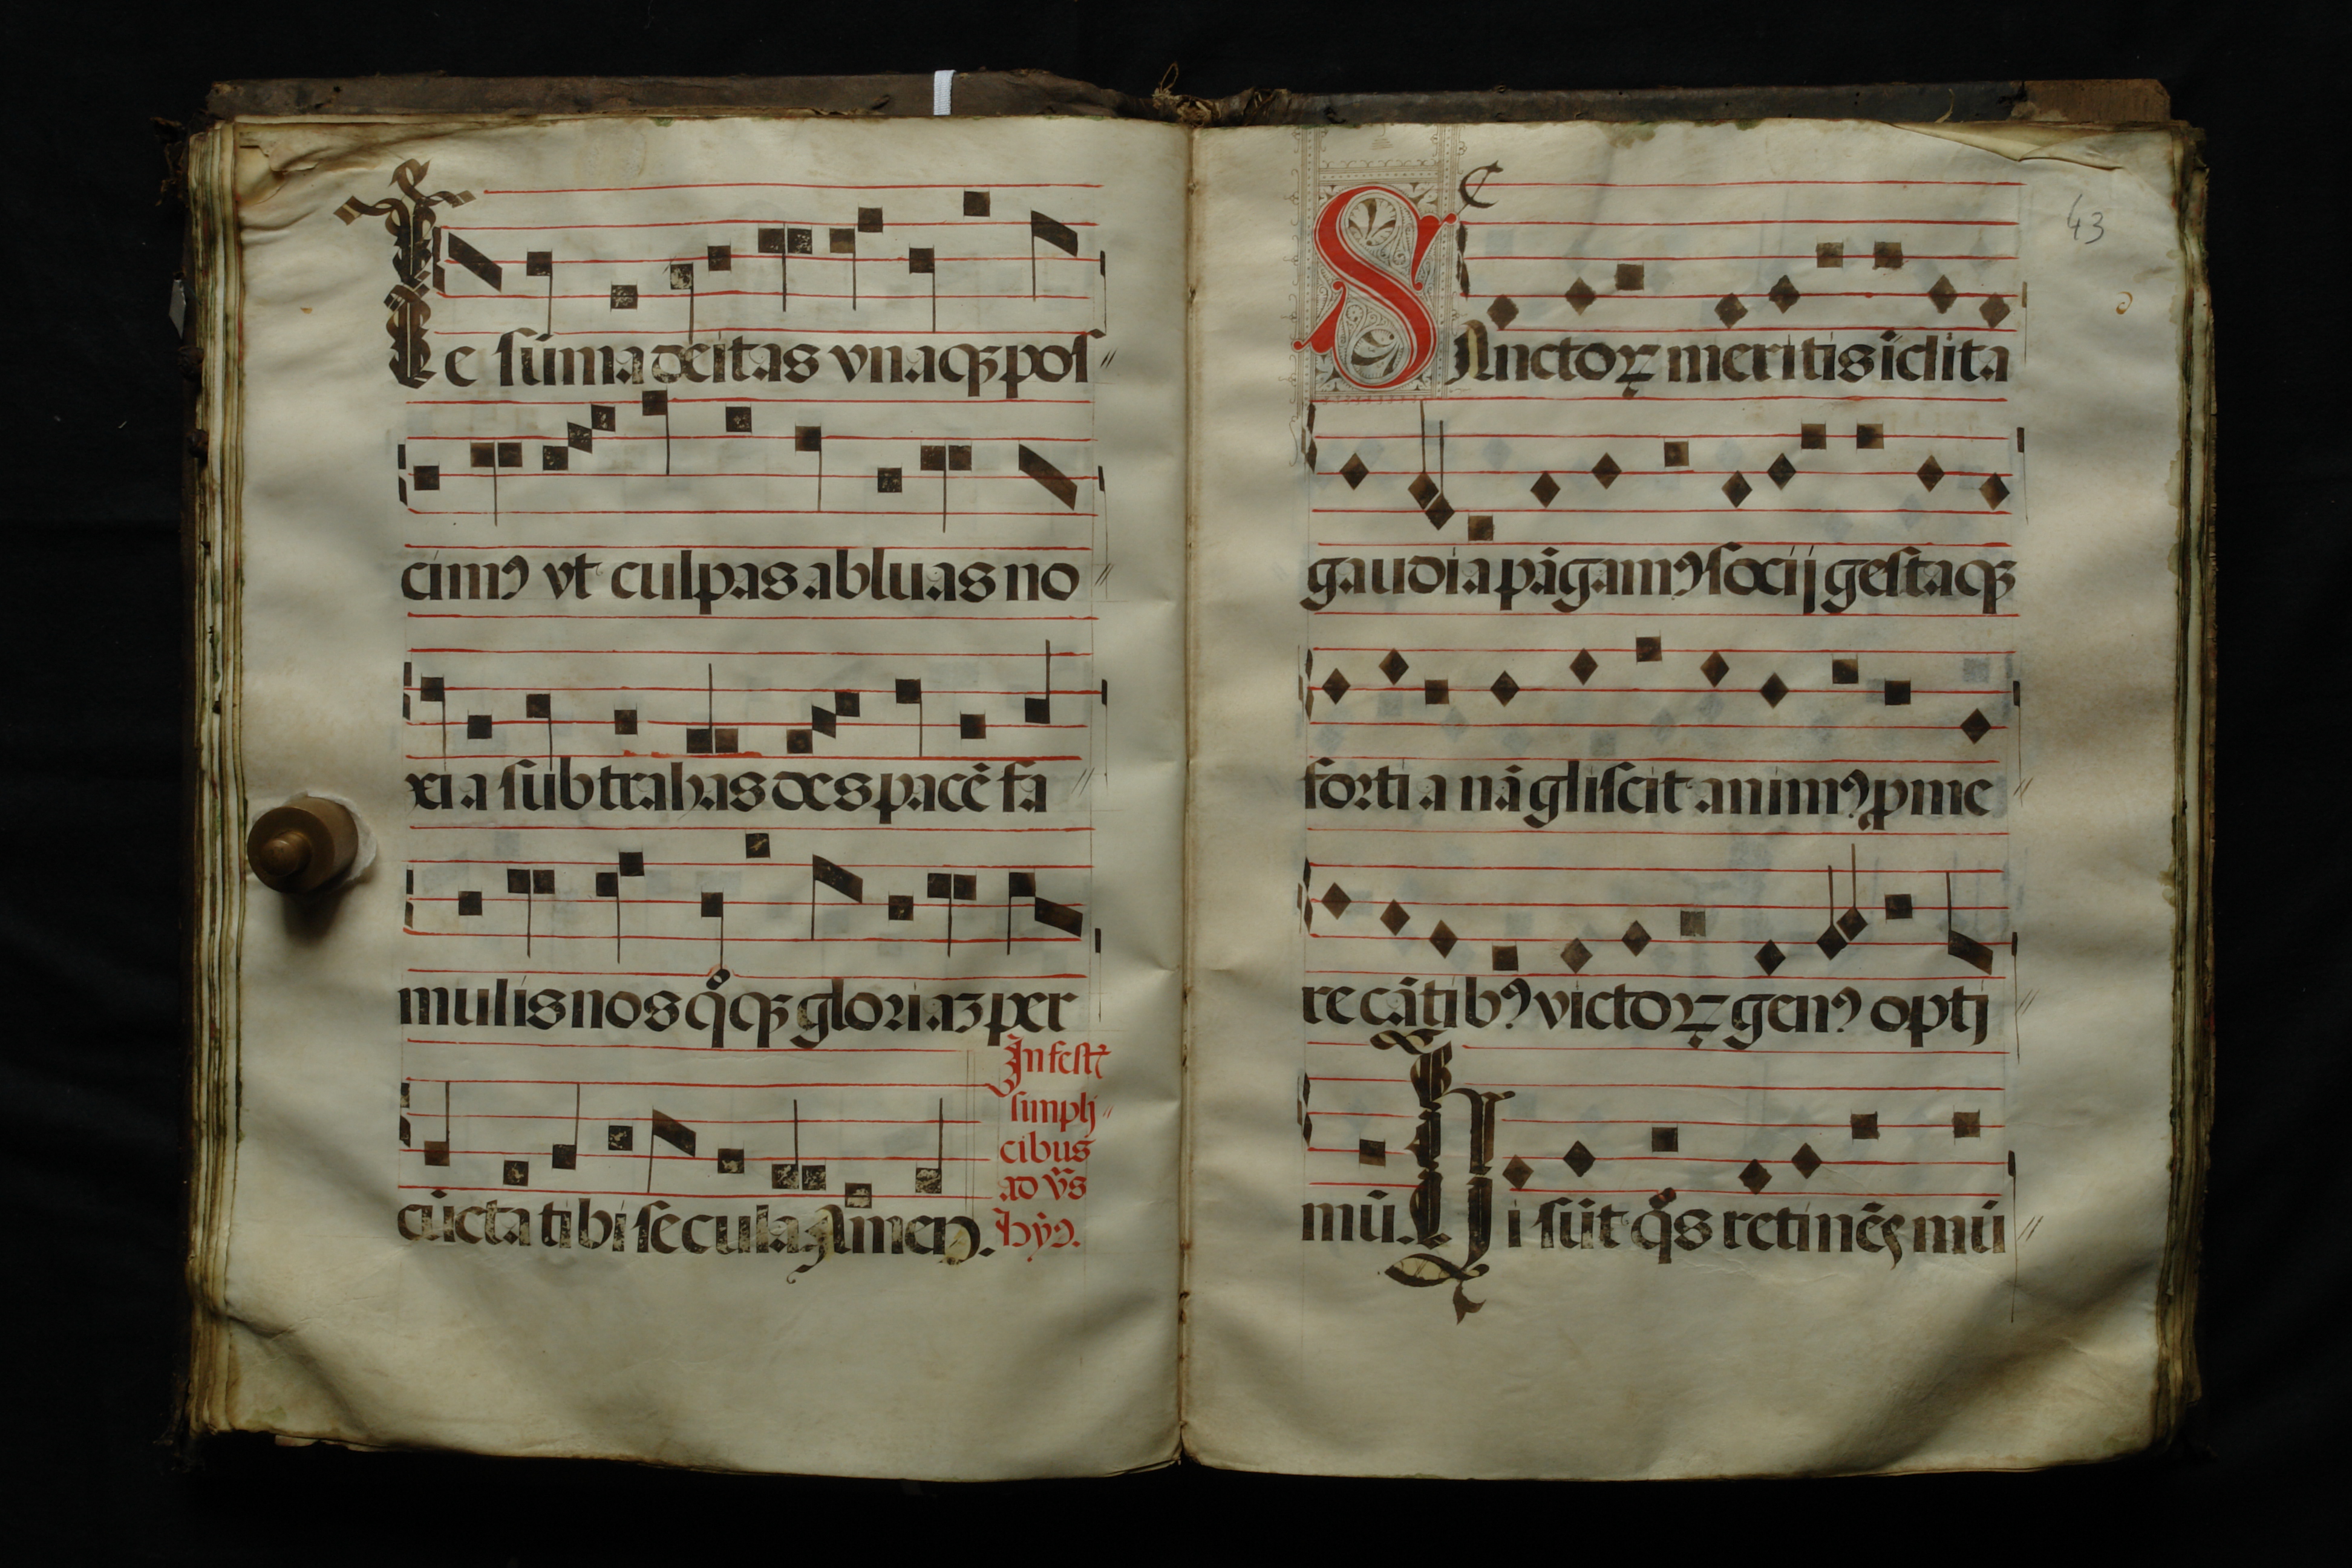 Te sūma deitas vnaqꝫ pos//
cimꝰ vt culpas abluas no//
xia subtrahas des pacē fa//
mulis nos qͦqꝫ gloriaꝫ per
cūcta tibi secula. Amen.
In fest
simpli//
cibus
ad vs̄
hyꝰ.
43
SAnctoꝝ meritis īclita
gaudia pāgamꝰ socij gestaqꝫ
fortia nā gliscit animꝰ ꝓme//
re cātibꝰ victoꝝ genꝰ opti//
mū. Hi sūt qͦs retinēs mū//